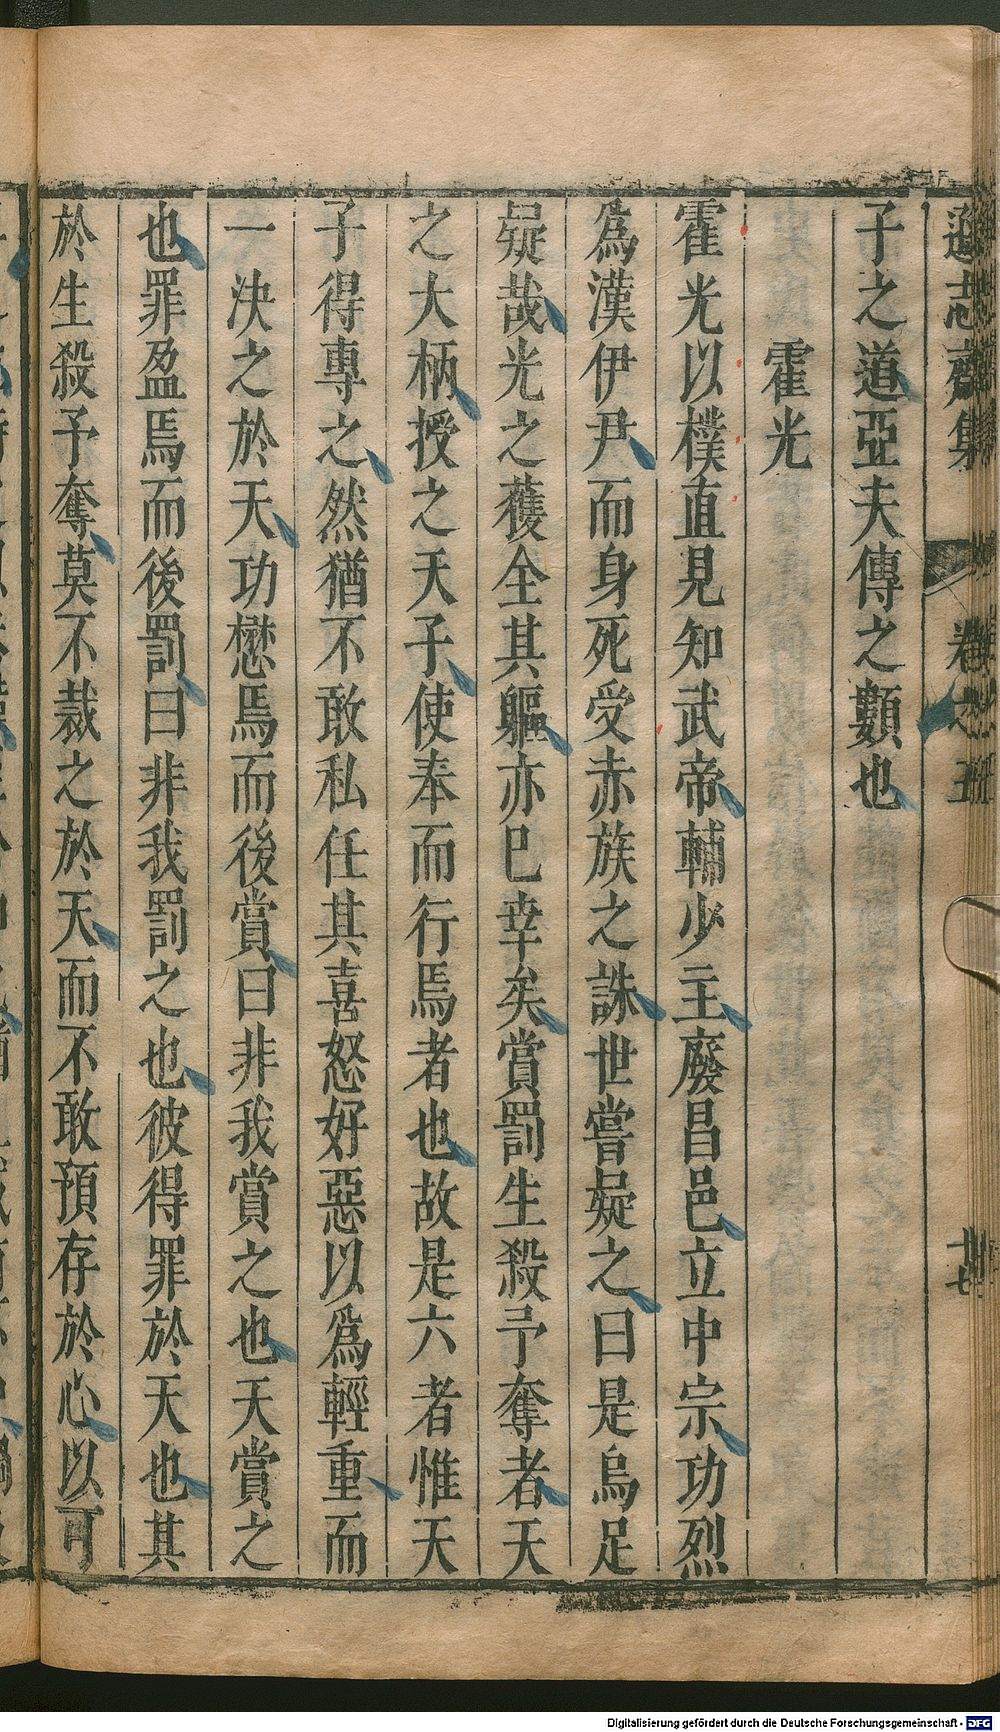 遜志齋集　卷之五　廿七
子之道亞夫傳之類也
霍光
霍光以樸直見知武帝輔少主廢昌邑立中宗功烈
爲漢伊尹而身死受赤族之誅世嘗疑之曰是烏足
疑哉光之獲全其軀亦已幸矣賞罰生殺予奪者天
之大柄授之天子使奉而行焉者也故是六者惟天
子得專之然猶不敢私任其喜怒好惡以爲輕重而
一決之於天功懋焉而後賞曰非我賞之也天賞之
也罪盈焉而後罰曰非我罰之也彼得罪於天也其
於生殺予奪莫不裁之於天而不敢預存於心以可
Digitalisierung gefördert durch die Deutsche Forschungsgemeinschaft - DFG